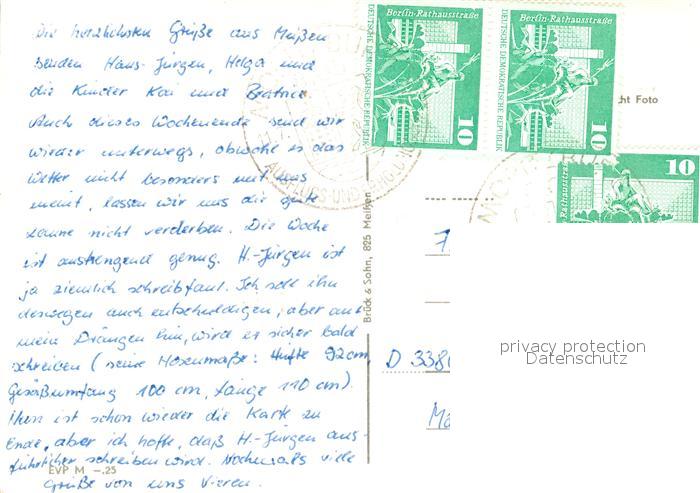 Die herzlichsten Grüße aus Meißen
senden Hans-Jürgen, Helga und
die Kinder Kai und Beatrice.
Auch dieses Wochenende sind wir
wieder unterwegs, obwohl es das
Wetter nicht besonders mit uns
meint, lassen wir uns die gute
Laune nicht verderben. Die Woche
ist anstrengend genug. H.-Jürgen ist
ja ziemlich schreibfaul. Ich soll ihn
deswegen auch entschuldigen, aber auf
mein Drängen hin, wird er sicher bald
schreiben (seine Hosenmaße: Hüfte 92 cm,
Gesäßumfang 100 cm, Länge 110 cm).
Nun ist schon wieder die Karte zu
Ende, aber ich hoffe, daß H.-Jürgen aus-
führlicher schreiben wird. Nochmals viele
Grüße von uns Vieren.
EVP M –.25
Brück & Sohn, 825 Meißen
Berlin-Rathausstraße
DEUTSCHE DEMOKRATISCHE REPUBLIK
10
Berlin-Rathausstraße
DEUTSCHE DEMOKRATISCHE REPUBLIK
10
ht Foto
Rathausstraße
10
D 338
privacy protection
Datenschutz